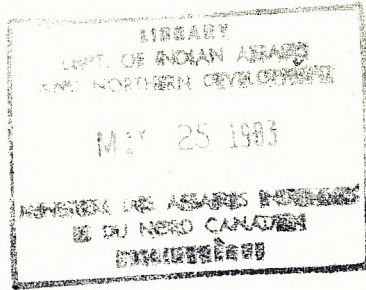 LIBRARY
DEPT. OF INDIAN AFFAIRS
AND NORTHERN DEVELOPMENT
MAY 25 1983
MINISTÈRE DES AFFAIRES INDIENNES
ET DU NORD CANADIEN
BIBLIOTHÈQUE